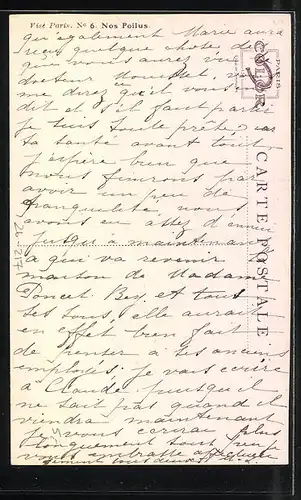 Visé Paris. Nº 6. Nos Poilus
CARTE POSTALE
COLOR
PARIS
qu'également Marie aura
reçu quelque chose, dès
que vous aurez vu
docteur vous
me direz qu'il vous
dit et s'il faut partir
je suis toute prête, car
ta santé avant tout
j'espère bien que
nous finirons par
avoir un peu de
tranquilité, nous
avons eu assez d'ennui
jusqu'à maintenant
à qui va revenir
maison de Madame
Poncet Bey, et tous
ses sous, elle aurait
en effet bien fait
de penser à ses anciens
employés. je vais écrire
à Claude puisqu'il
ne sait pas quand il
viendra maintenant
Je vous écrirai plus
longuement tout
vous embrasse affectueu
sement tous deux